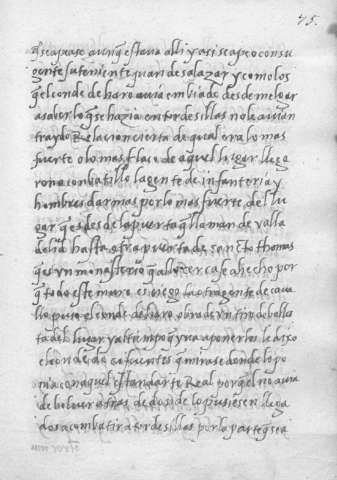 75.
descapase aunq̃ estava alli y asi se apeo con su
gente su teniente juan de salazar y como los
q̃ el conde de haro avia embiado desde melgar
a saber lo q̃ se hazia en tordesillas no le avian
traydo Relacion cierta de qual era lo mas
fuerte o lo mas flaco de aquel lugar llega
ron a conbatillo la gente de infanteria y
hombres darmas por lo mas fuerte del lu
gar q̃ es desde la puerta q̃ llaman de valla
dolid hasta otra puerta de sancto thomas
q̃ es vn monasterio q̃ alli cerca se a hecho por
q̃ todo este muro es ciego la otra gente de cava
llo puso el conde de haro obra de vn tiro de balles
ta del lugar y al tiempo q̃ yva a poner los le dixo
el conde de cifuentes q̃ mirase donde lo po
nia con aquel estandarte Real porq̃ el no avia
de bolver atras de do si de lo pusiesen llega
dos a combatir a tordesillas por la parte q̃ sea